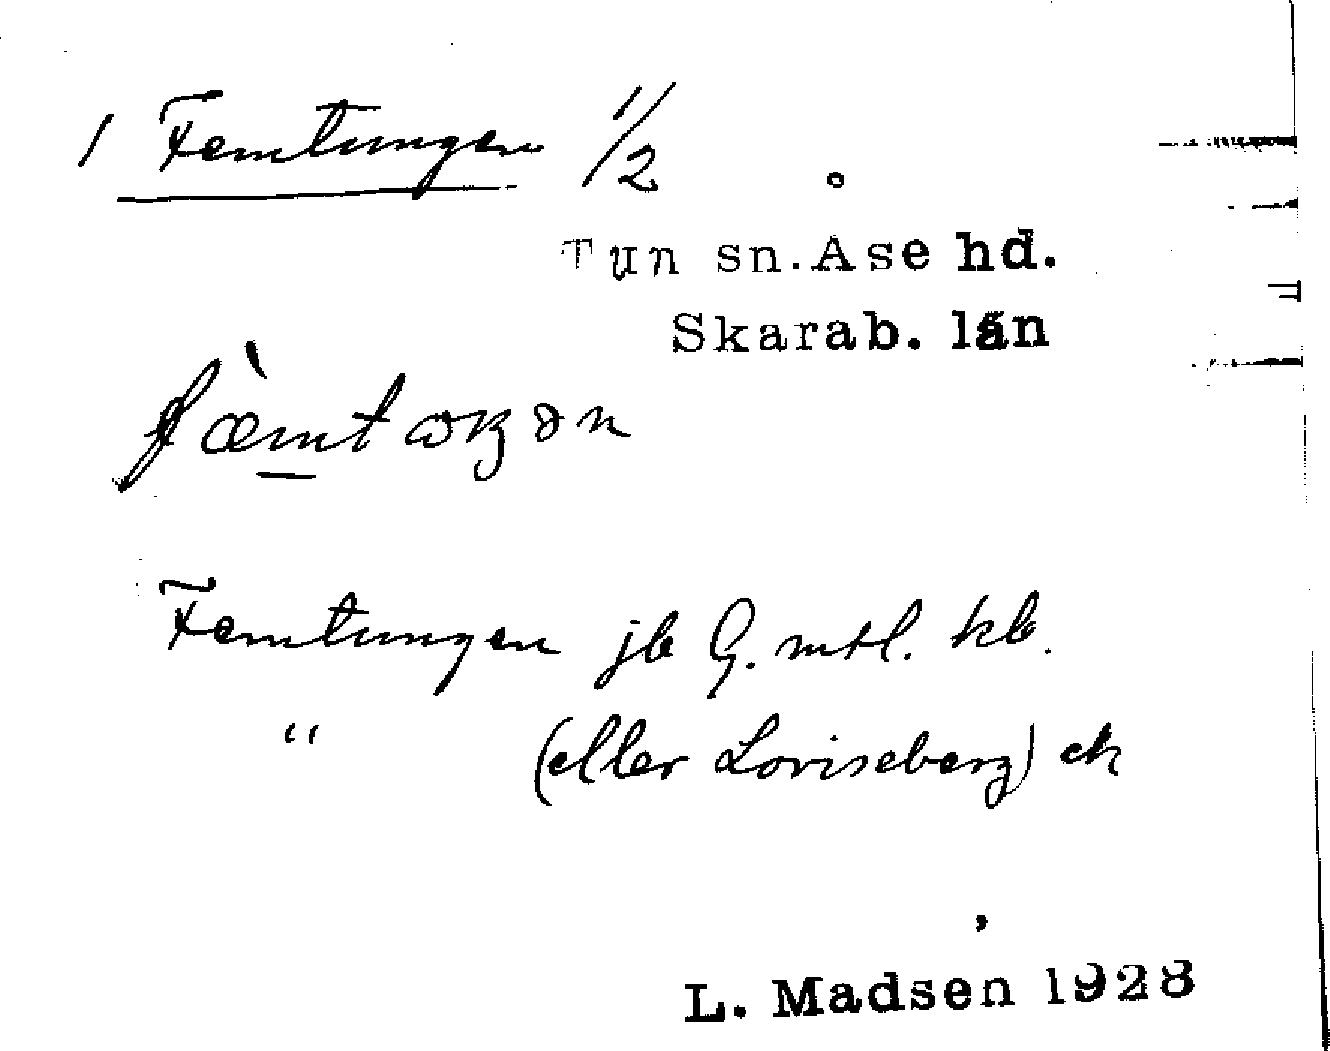 1 Femtungen 1/2
Tun sn. Åse hd.
Skarab. län
fæ̀mtɷŋən
Femtungen jb G. mtl. kb.
" (eller Loviseberg) ek
L. Madsen 1928